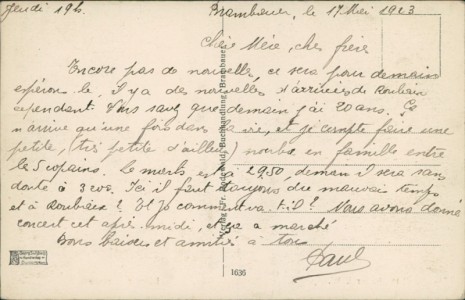 Jeudi 19h. Brambauer, le 17 Mai 1923
Chère Mère, cher frère
Encore pas de nouvelles, ce sera pour demain
espérons le. Il y a des nouvelles d'arrivées de Roubaix
cependant. Vous savez que demain j'ai 20 ans. Ça
n'arrive qu'une fois dans la vie, et je compte faire une
petite, très petite d'ailleurs) en famille entre
les copains. Le mark est à 2950, demain il sera sans
doute à 3000. Ici il fait toujours du mauvais temps
et à Roubaix? Et Jo comment va-t-il? Nous avons donné
concert cet après-midi, et ça a marché
Bons baisers et amitiés à tous
Paul
1636